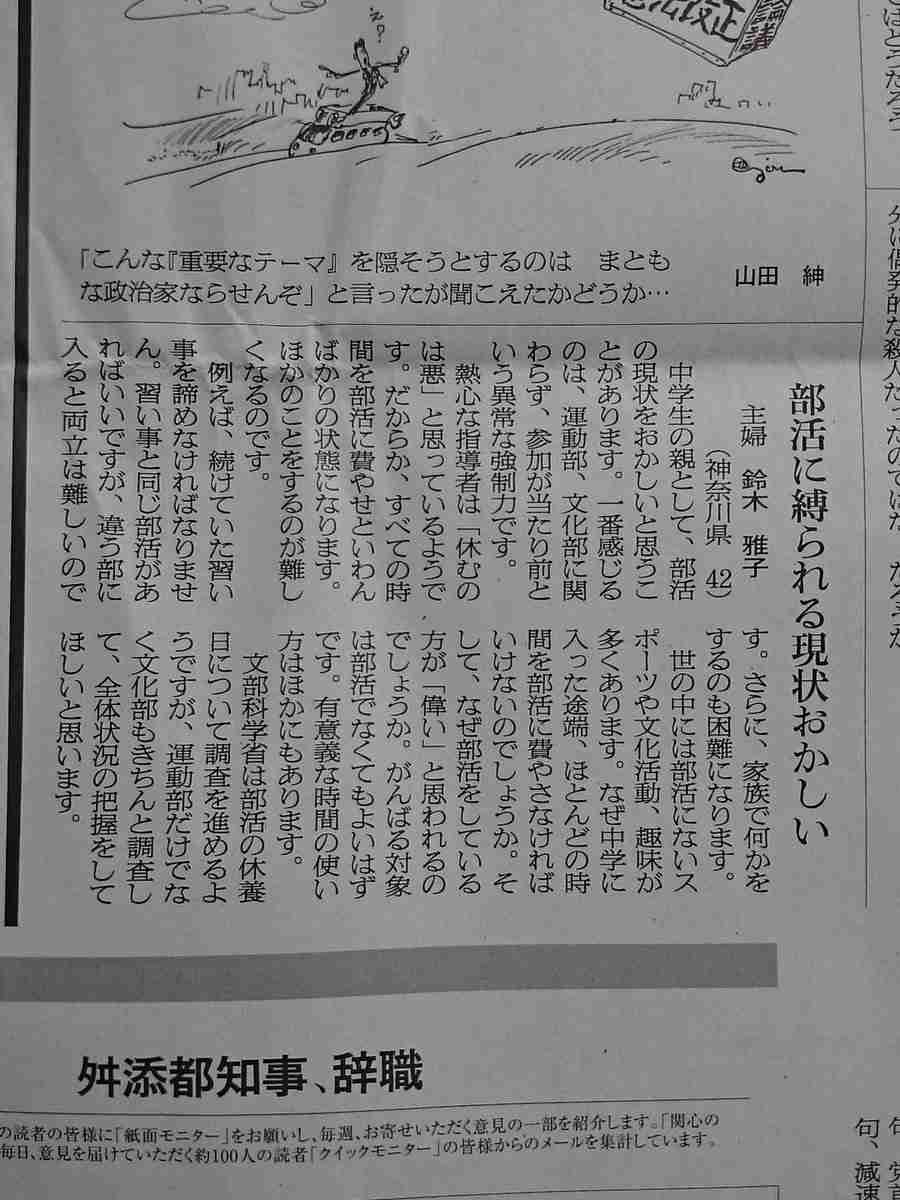 え?
改正
論議
「こんな『重要なテーマ』を隠そうとするのは　まとも
な政治家ならせんぞ」と言ったが聞こえたかどうか…
山田　紳
部活に縛られる現状おかしい
主婦　鈴木　雅子
（神奈川県　42）
中学生の親として、部活
の現状をおかしいと思うこ
とがあります。一番感じる
のは、運動部、文化部に関
わらず、参加が当たり前と
いう異常な強制力です。
熱心な指導者は「休むの
は悪」と思っているようで
す。だからか、すべての時
間を部活に費やせといわん
ばかりの状態になります。
ほかのことをするのが難し
くなるのです。
例えば、続けていた習い
事を諦めなければなりませ
ん。習い事と同じ部活があ
ればいいですが、違う部に
入ると両立は難しいので
す。さらに、家族で何かを
するのも困難になります。
世の中には部活にないス
ポーツや文化活動、趣味が
多くあります。なぜ中学に
入った途端、ほとんどの時
間を部活に費やさなければ
いけないのでしょうか。そ
して、なぜ部活をしている
方が「偉い」と思われるの
でしょうか。がんばる対象
は部活でなくてもよいはず
です。有意義な時間の使い
方はほかにもあります。
文部科学省は部活の休養
日について調査を進めるよ
うですが、運動部だけでな
く文化部もきちんと調査し
て、全体状況の把握をして
ほしいと思います。
舛添都知事、辞職
の読者の皆様に「紙面モニター」をお願いし、毎週、お寄せいただく意見の一部を紹介します。「関心の
毎日、意見を届けていただく約100人の読者「クイックモニター」の皆様からのメールを集計しています。
句、減速